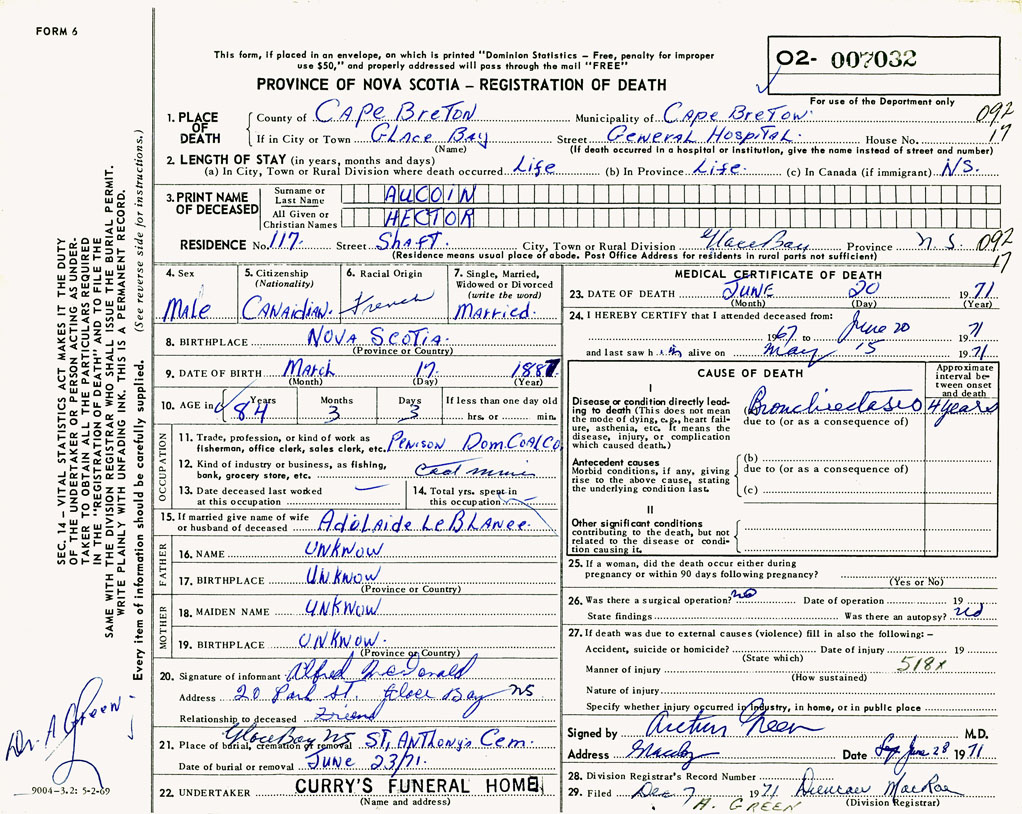 FORM 6
This form, if placed in an envelope, on which is printed "Dominion Statistics – Free, penalty for improper
use $50," and properly addressed will pass through the mail "FREE"
O2- 007032
PROVINCE OF NOVA SCOTIA – REGISTRATION OF DEATH
For use of the Department only
1. PLACE OF DEATH
County of Cape Breton Municipality of Cape Breton 092
If in City or Town Glace Bay Street General Hospital. House No. 17
(Name) (If death occurred in a hospital or institution, give the name instead of street and number)
2. LENGTH OF STAY (in years, months and days)
(a) In City, Town or Rural Division where death occurred Life (b) In Province Life. (c) In Canada (if immigrant) N.S.
3. PRINT NAME OF DECEASED
Surname or Last Name AUCOIN
All Given or Christian Names HECTOR
RESIDENCE No. 117. Street Shaft. City, Town or Rural Division Glace Bay Province N.S. 092
(Residence means usual place of abode. Post Office Address for residents in rural parts not sufficient) 17
4. Sex
Male
5. Citizenship
(Nationality)
CANAIDIAN.
6. Racial Origin
French
7. Single, Married,
Widowed or Divorced
(write the word)
Married.
8. BIRTHPLACE Nova Scotia.
(Province or Country)
9. DATE OF BIRTH March 17. 1887
(Month) (Day) (Year)
10. AGE in Years 84 Months 3 Days 3 If less than one day old
hrs. or min.
OCCUPATION
11. Trade, profession, or kind of work as
fisherman, office clerk, sales clerk, etc. Penison Dom. Coal Co
12. Kind of industry or business, as fishing,
bank, grocery store, etc. Coal mine
13. Date deceased last worked
at this occupation
14. Total yrs. spent in
this occupation
15. If married give name of wife
or husband of deceased Adelaide LeBlanee.
FATHER
16. NAME UNKNOW
17. BIRTHPLACE UNKNOW
(Province or Country)
MOTHER
18. MAIDEN NAME UNKNOW
19. BIRTHPLACE UNKNOW.
(Province or Country)
20. Signature of informant Alfred McDonald
Address 20 Park St. Glace Bay NS
Relationship to deceased Friend
21. Place of burial, cremation or removal Glace Bay NS ST, Anthony's Cem.
Date of burial or removal JUNE 23/71.
22. UNDERTAKER CURRY'S FUNERAL HOME
(Name and address)
MEDICAL CERTIFICATE OF DEATH
23. DATE OF DEATH JUNE 20 1971
(Month) (Day) (Year)
24. I HEREBY CERTIFY that I attended deceased from:
1967 to June 20 71
and last saw him alive on May 15 1971
CAUSE OF DEATH
Approximate
interval be-
tween onset
and death
I
Disease or condition directly lead-
ing to death (This does not mean
the mode of dying, e.g., heart fail-
ure, asthenia, etc. It means the
disease, injury, or complication
which caused death.)
Bronchiectasis 4 years
due to (or as a consequence of)
Antecedent causes
Morbid conditions, if any, giving
rise to the above cause, stating
the underlying condition last.
(b)
due to (or as a consequence of)
(c)
II
Other significant conditions
contributing to the death, but not
related to the disease or condi-
tion causing it.
25. If a woman, did the death occur either during
pregnancy or within 90 days following pregnancy?
(Yes or No)
26. Was there a surgical operation? No Date of operation 19
State findings Was there an autopsy? No
27. If death was due to external causes (violence) fill in also the following: –
Accident, suicide or homicide? Date of injury 19
(State which)
518x
Manner of injury
(How sustained)
Nature of injury
Specify whether injury occurred in industry, in home, or in public place
Signed by Arthur Green M.D.
Address Date June 28 1971
28. Division Registrar's Record Number
29. Filed Dec 7 1971 Duncan MacRae
A. GREEN (Division Registrar)
SEC. 14 – VITAL STATISTICS ACT MAKES IT THE DUTY
OF THE UNDERTAKER OR PERSON ACTING AS UNDER-
TAKER TO OBTAIN ALL THE PARTICULARS REQUIRED
IN THE "REGISTRATION OF DEATH" AND TO FILE THE
SAME WITH THE DIVISION REGISTRAR WHO SHALL ISSUE THE BURIAL PERMIT.
WRITE PLAINLY WITH UNFADING INK. THIS IS A PERMANENT RECORD.
Every item of information should be carefully supplied. (See reverse side for instructions.)
Dr. A Green
9004-3.2: 5-2-69